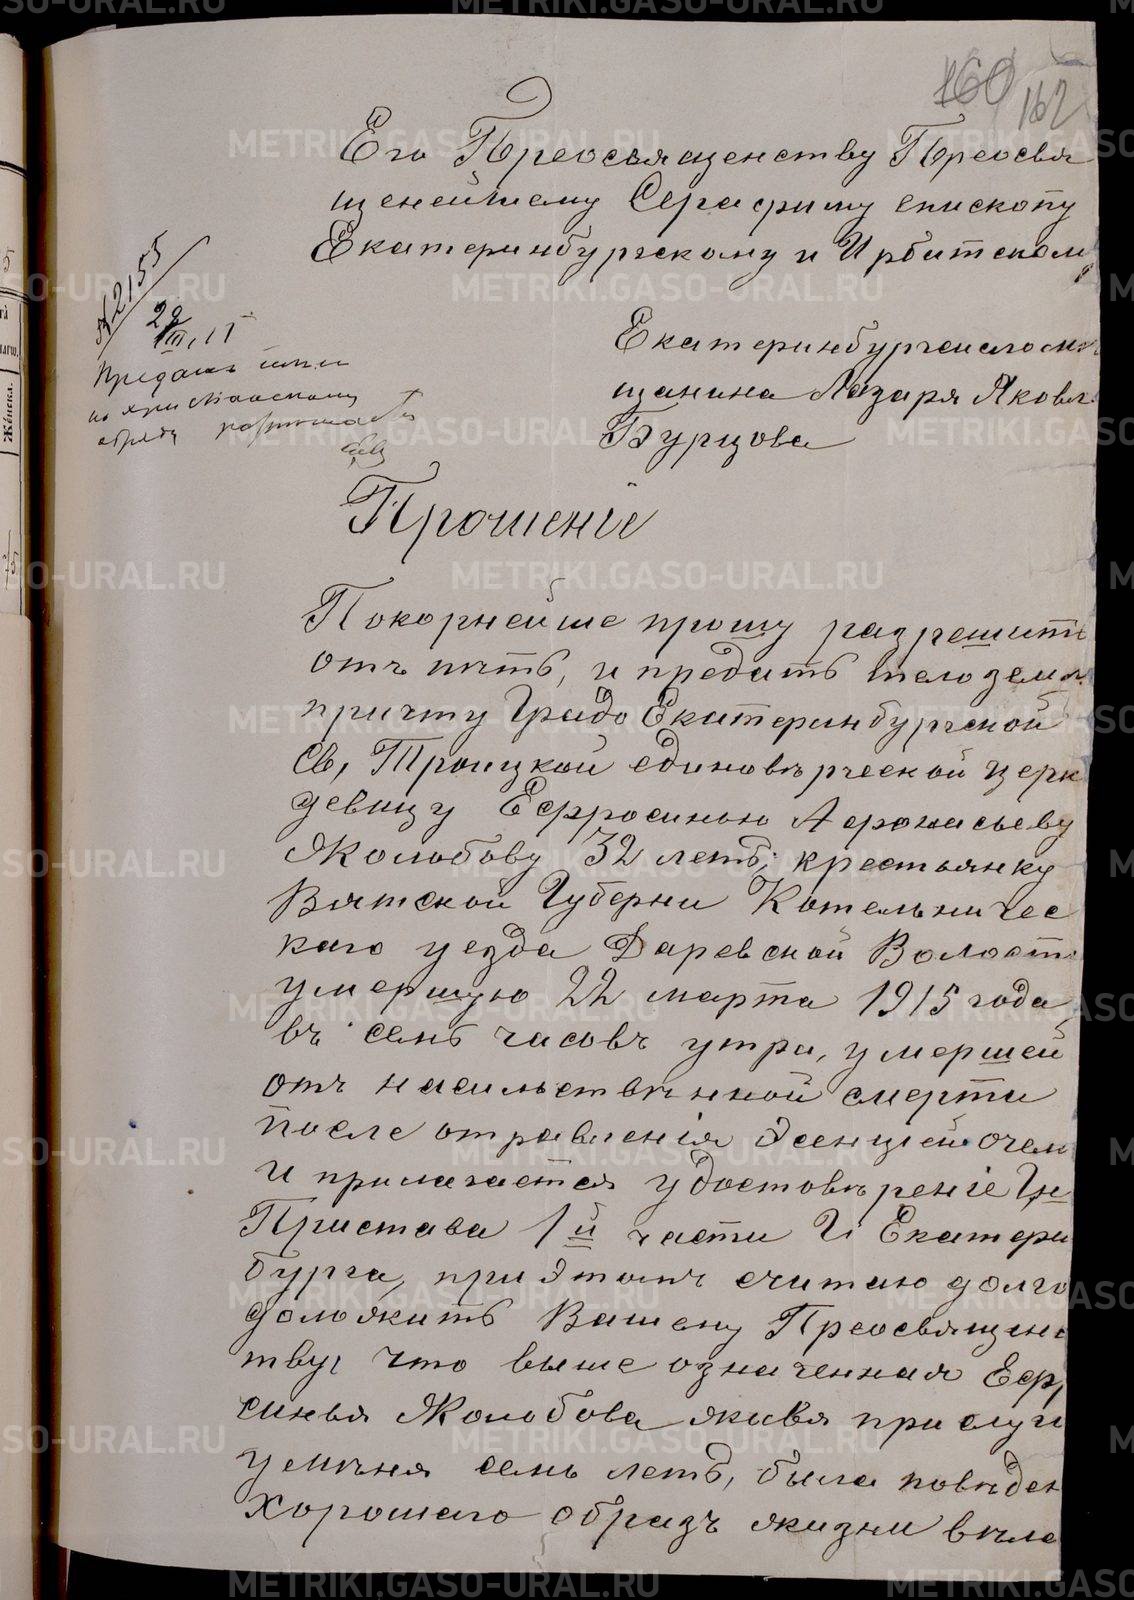 160 162
Его Преосвященству Преосвя
щенейшему Серафиму епископу
Екатеринбургскому и Ирбитском
№2155
Екатеринбургскаго ме
щанина Лазаря Яковл
Бурцова
Предать земли
по христіанскому
обряду разрѣшаю
Прошеніе
Покорнейше прошу разрешить
отъ петь, и предать тело земли
причту Градо Екатеринбургской
Св, Троицкой единовѣрческой церк
девицу Ефросинью Афонасьеву
Жолобову 32 летъ, крестьянку
Вятской Губерни Котельничес
каго уезда Даревской Волости
умершую 22 марта 1915 года
въ семь часовъ утра, умершей
отъ насильствѣнной смерти
после отравленія Эсенцией очем
и прилагается удостовѣреніе Гн
Пристава 1й части Г. Екатерин
бурга, при этомъ считаю долго
доложить Вашему Преосвящен
тву, что выше означенная Ефр
синья Жолобова живя прислуг
у меня семь летъ, была поведен
хорошаго образъ жизни вѣла
METRIKI.GASO-URAL.RU